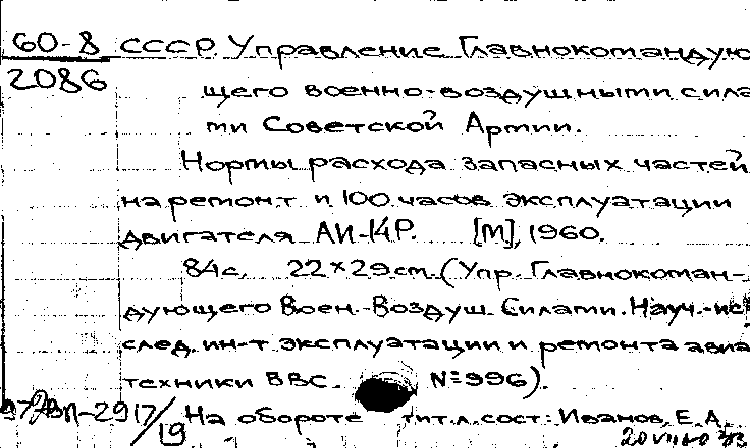 60-8 СССР. Управление Главнокомандую
2086
щего военно-воздушными сила
ми Советской Армии.
Нормы расхода запасных частей
на ремонт и 100 часов эксплуатации
двигателя АИ-14Р. [М], 1960.
84с. 22×29см. (Упр. Главнокоман-
дующего Воен.-Воздуш. Силами. Науч.-ис
след. ин-т эксплуатации и ремонта авиа
техники ВВС. №996).
На обороте тит. л. сост: Иванов, Е. А.